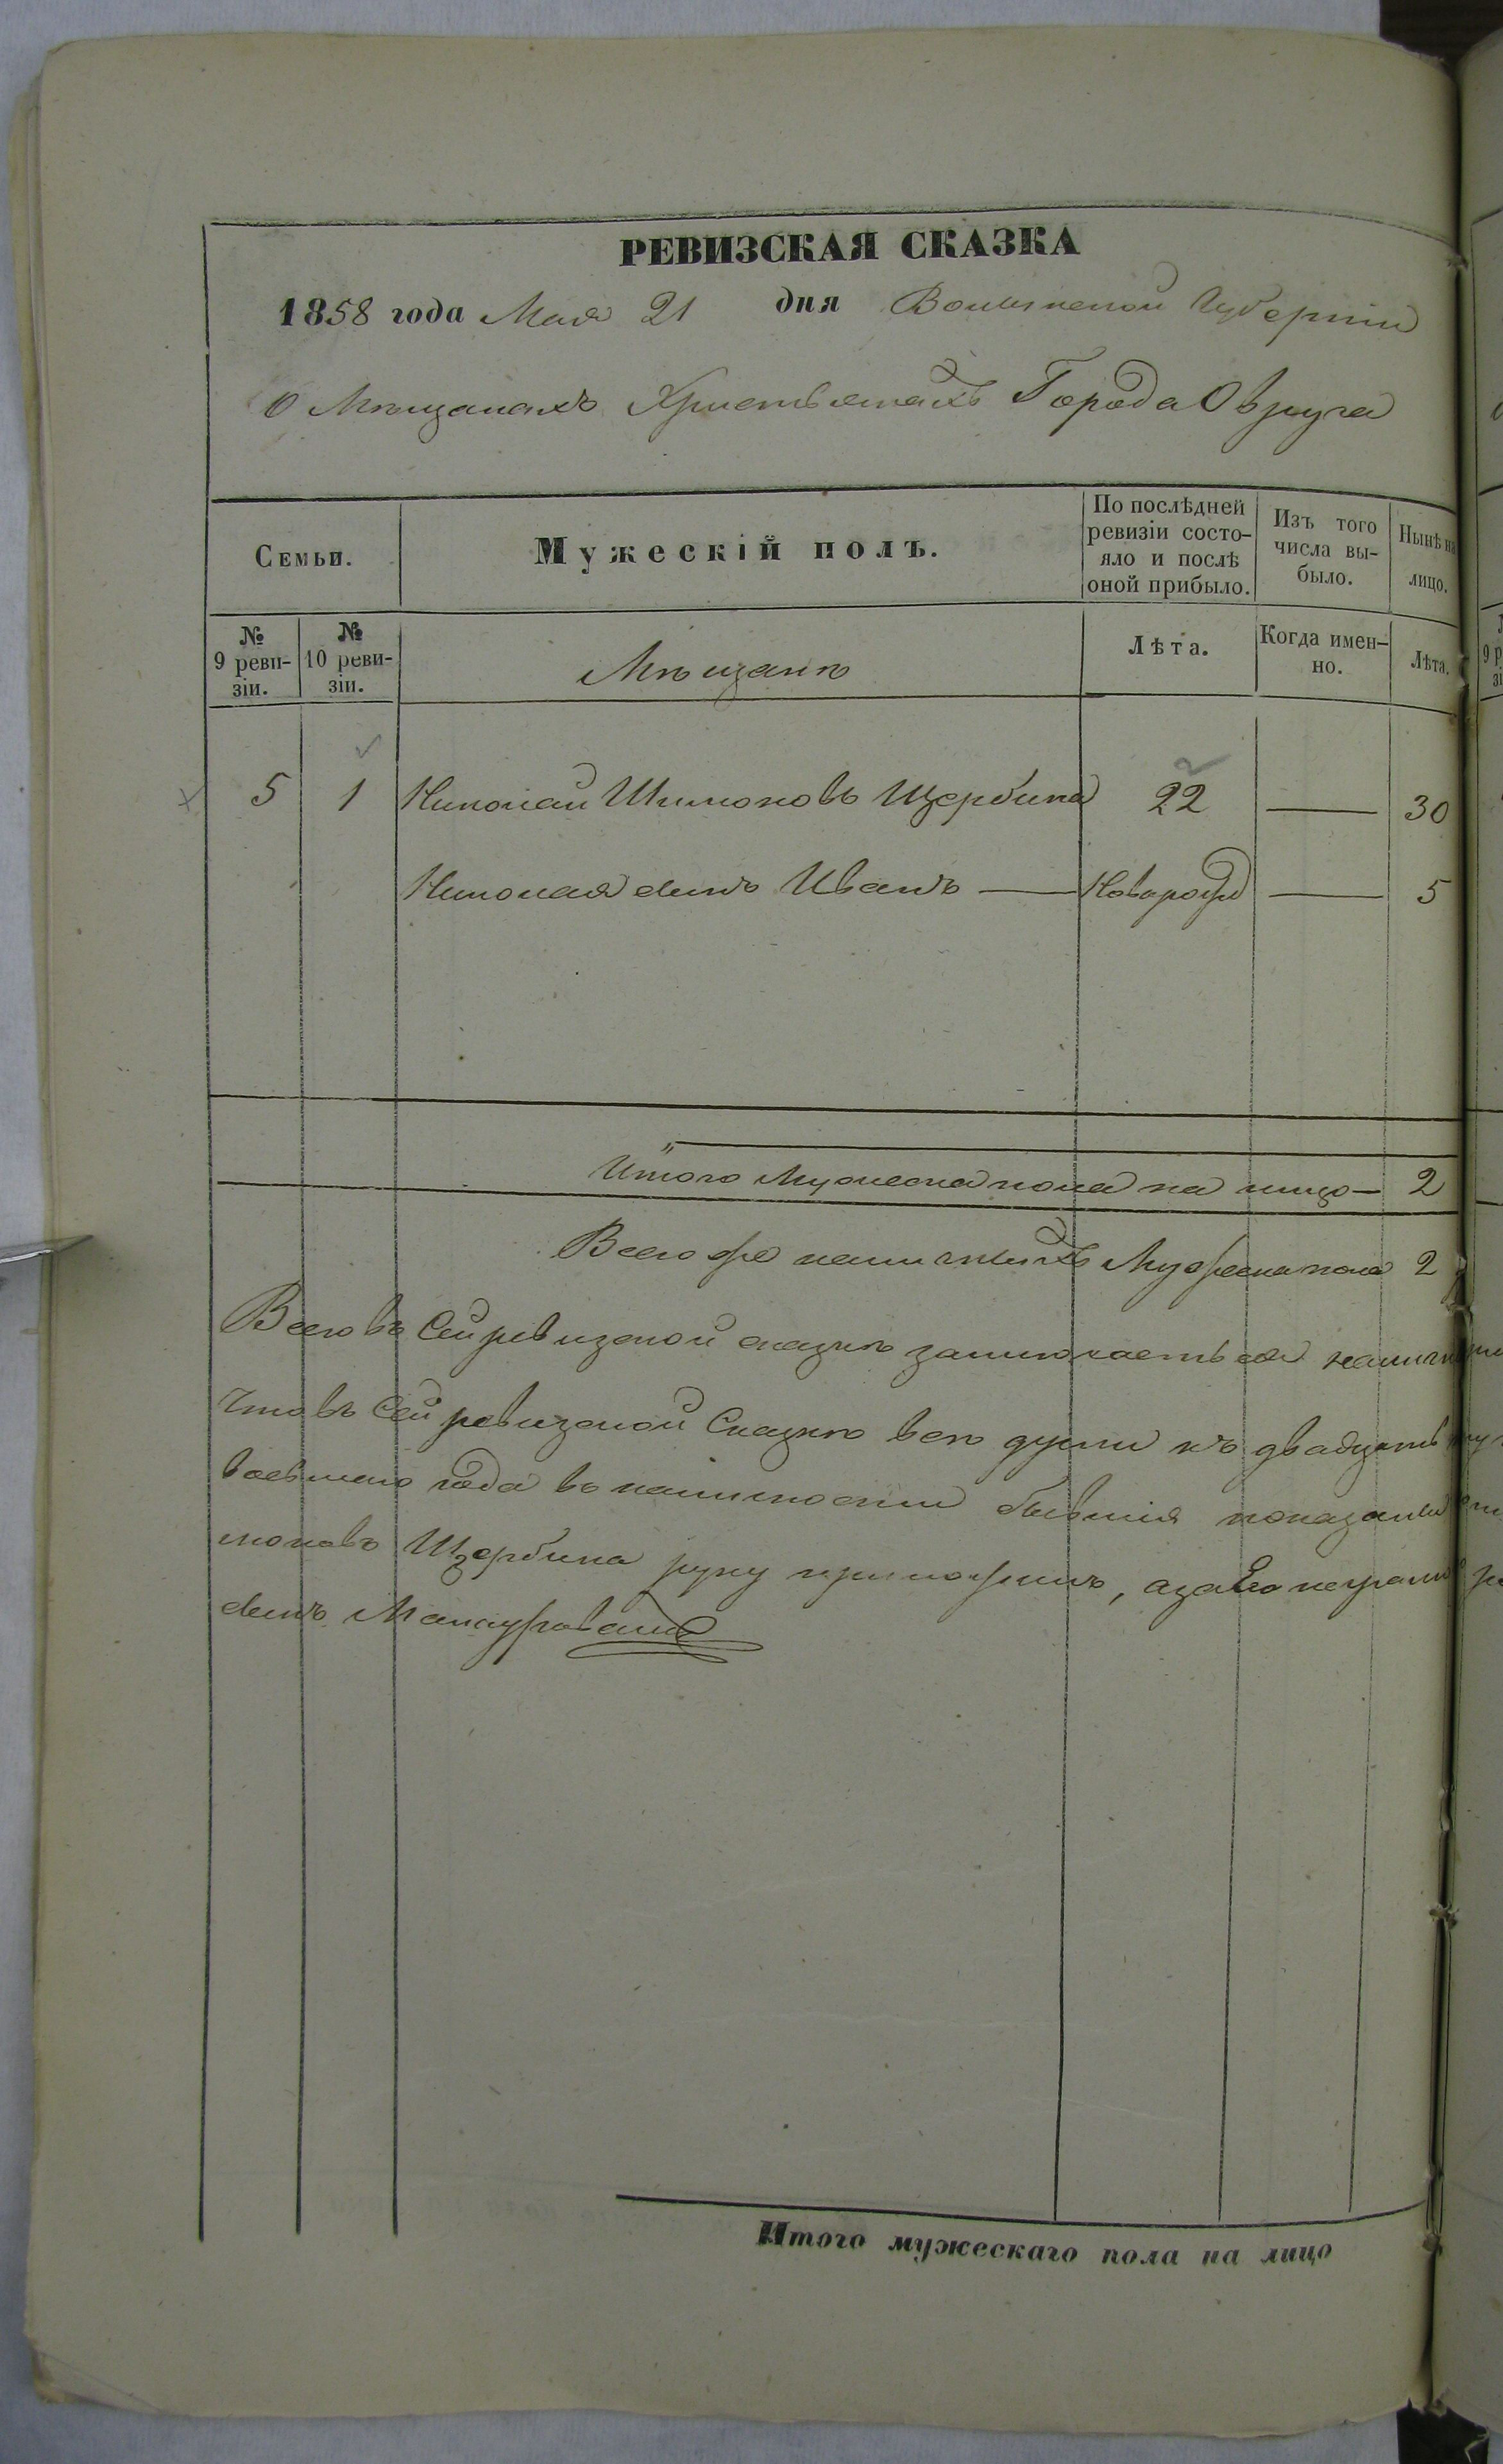 РЕВИЗСКАЯ СКАЗКА
1858 года Мая 21 дня Волынской Губерніи
О Мѣщанахъ Христьянахъ Города Овруча
Семьи.
Мужескій полъ.
По послѣдней ревизіи состо-
яло и послѣ
оной прибыло.
Изъ того
числа вы-
было.
Нынѣ на
лицо.
№
9 реви-
зіи.
№
10 реви-
зіи.
Мѣщане
Лѣта.
Когда имен-
но.
Лѣта.
5 1 Николай Шимоновъ Щербина 22 — 30
Николая сынъ Иванъ — Оворожд — 5
Итого Мужеска пола на лицо — 2
Всего же наличныхъ Мужеска пола 2
Всего въ Сей ревизской сказкѣ заключаеться
Что въ Сей ревизской Сказкѣ всѣ души къ двадцать
восьмого года въ наличности бывшія показаны
моновъ Щербина руку приложилъ, а за Его неграм
сынъ
Итого мужескаго пола на лицо